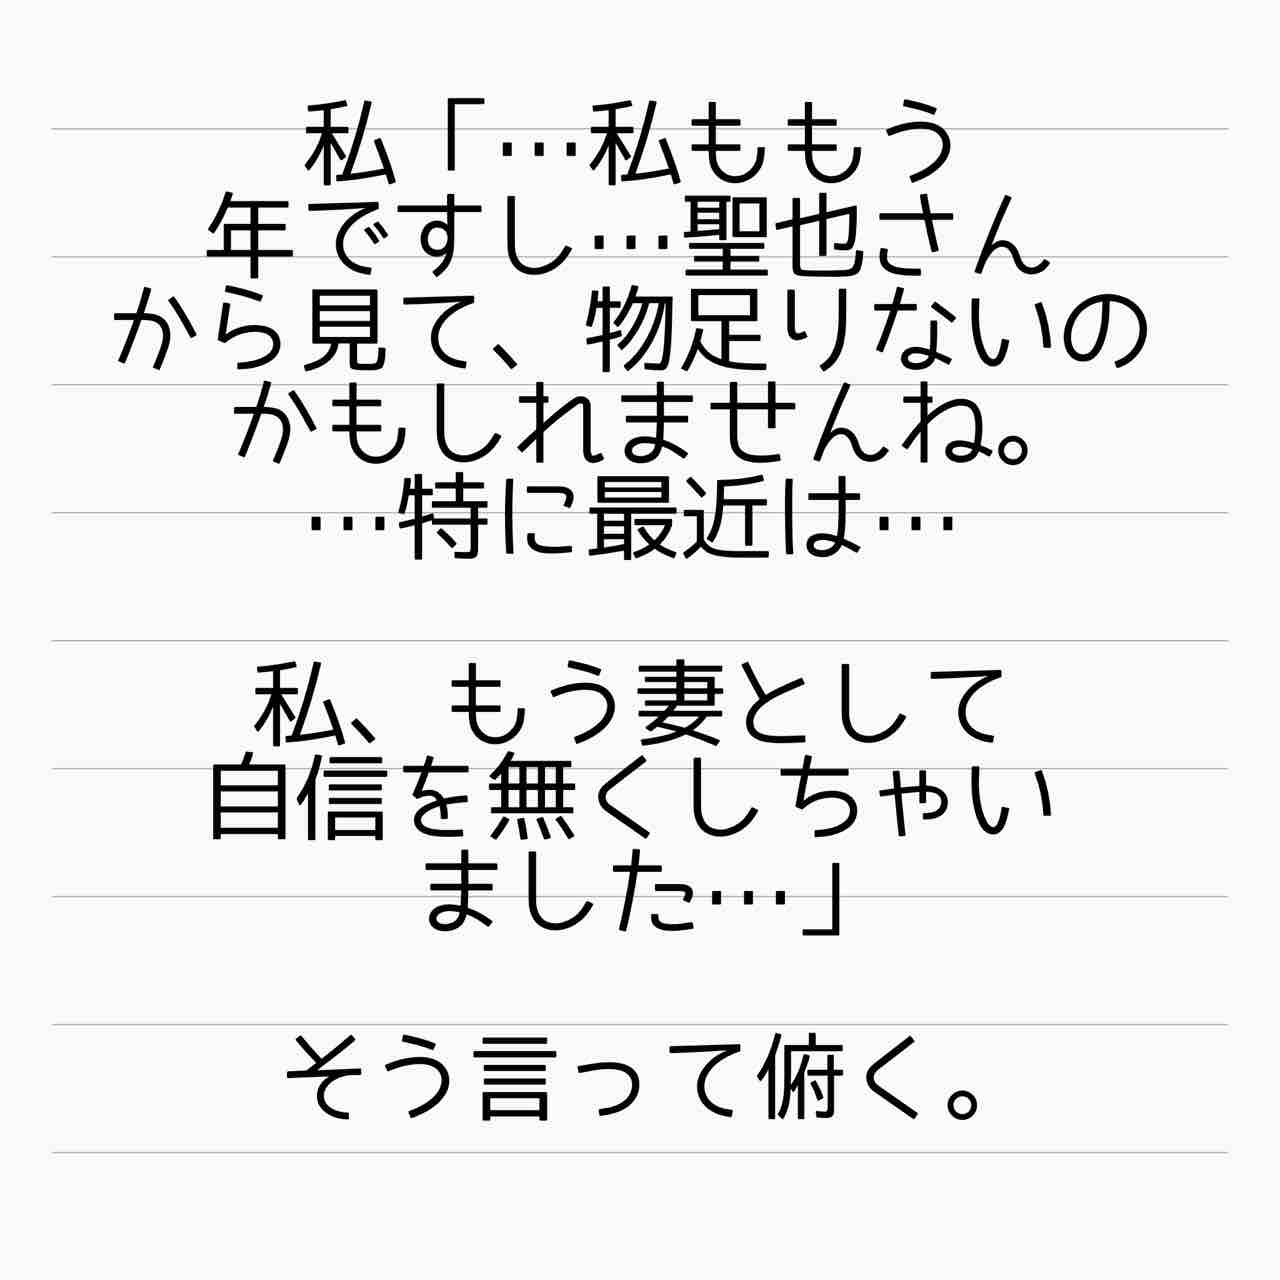 私「…私ももう
年ですし…聖也さん
から見て、物足りないの
かもしれませんね。
…特に最近は…
私、もう妻として
自信を無くしちゃい
ました…」
そう言って俯く。